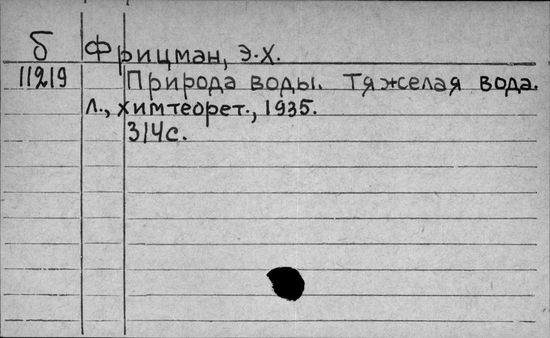 б Фрицман, Э.Х.
11219 Природа воды. Тяжелая вода.
Л., химтеорет., 1935.
314с.